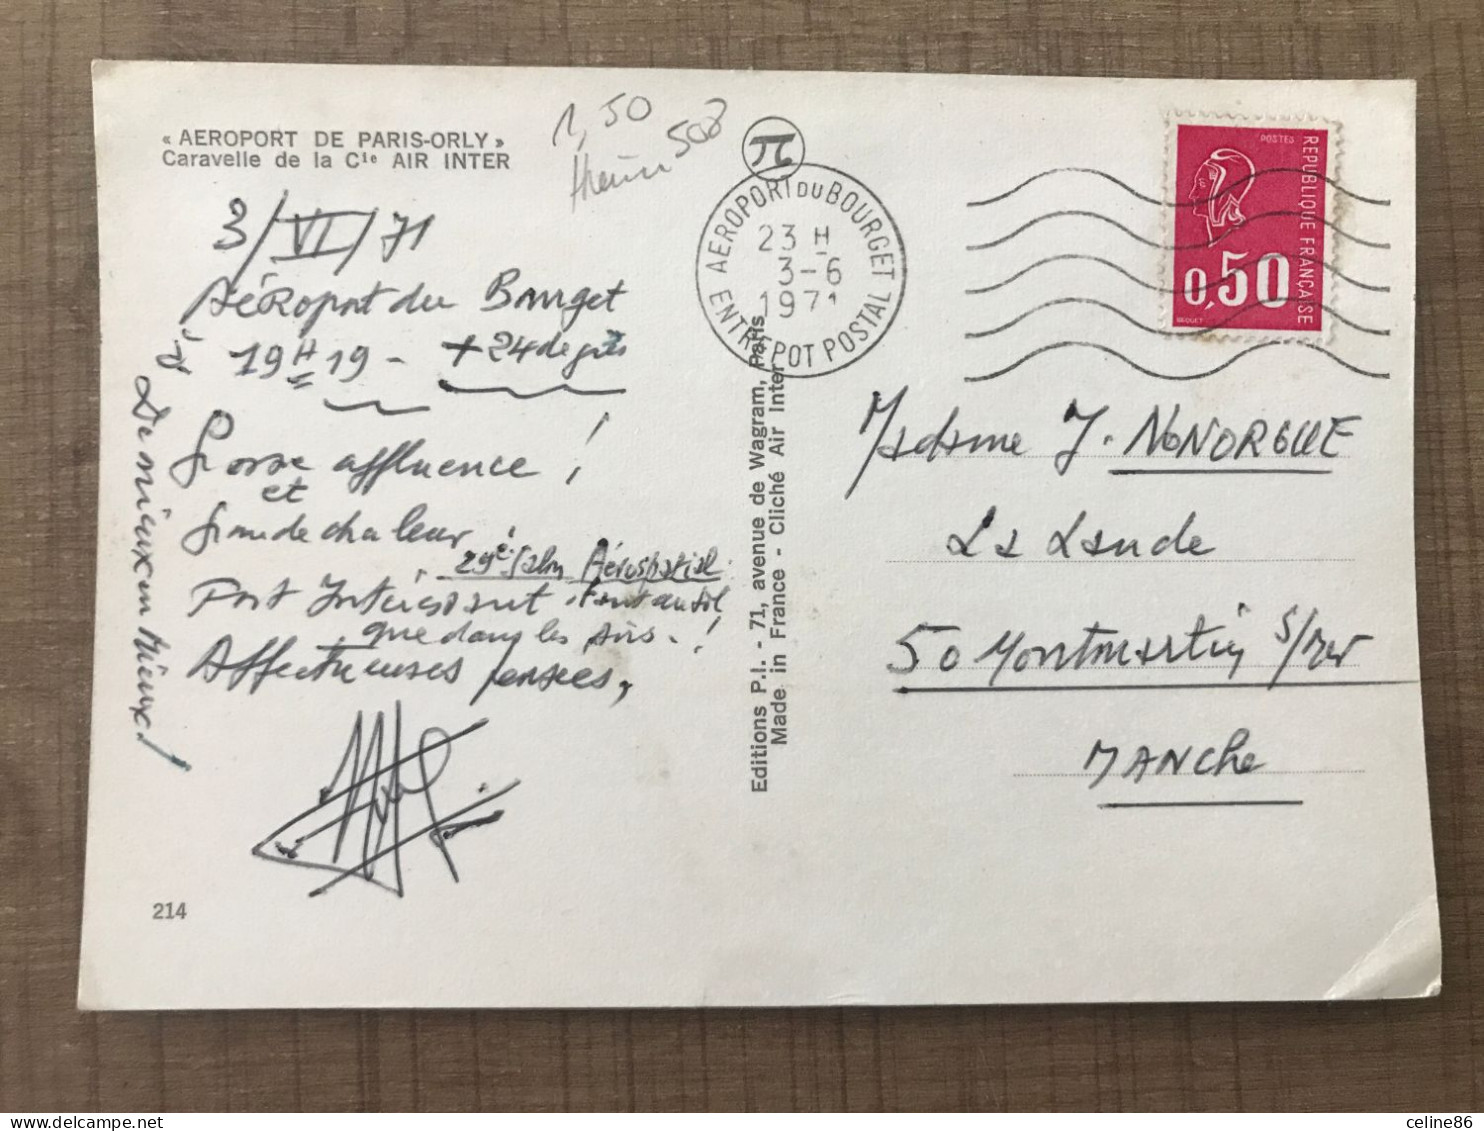 « AEROPORT DE PARIS-ORLY »
Caravelle de la Cie AIR INTER
1,50
508
3/VI/71
Aéroport du Bourget
à 19H19 - +24 degrés
Grosse affluence !
et
Grande chaleur
29e Salon Aérospatial
Fort Intéressant, tant au sol
que dans les airs. !
Affectueuses pensées,
De mieux en mieux !
214
Editions P.I. - 71, avenue de Wagram, Paris
Made in France - Cliché Air Inter
AEROPORT DU BOURGET
23 H
3-6
1971
ENTREPOT POSTAL
POSTES
REPUBLIQUE FRANÇAISE
0,50
BEQUET
Madame J. NONORGUE
La Lande
50 Montmartin s/Mer
MANChe
delcampe.net
celine86